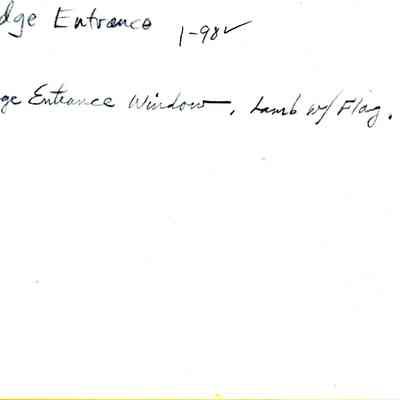 dge Entrance 1-98✓
ge Entrance Window, Lamb w/ Flag.